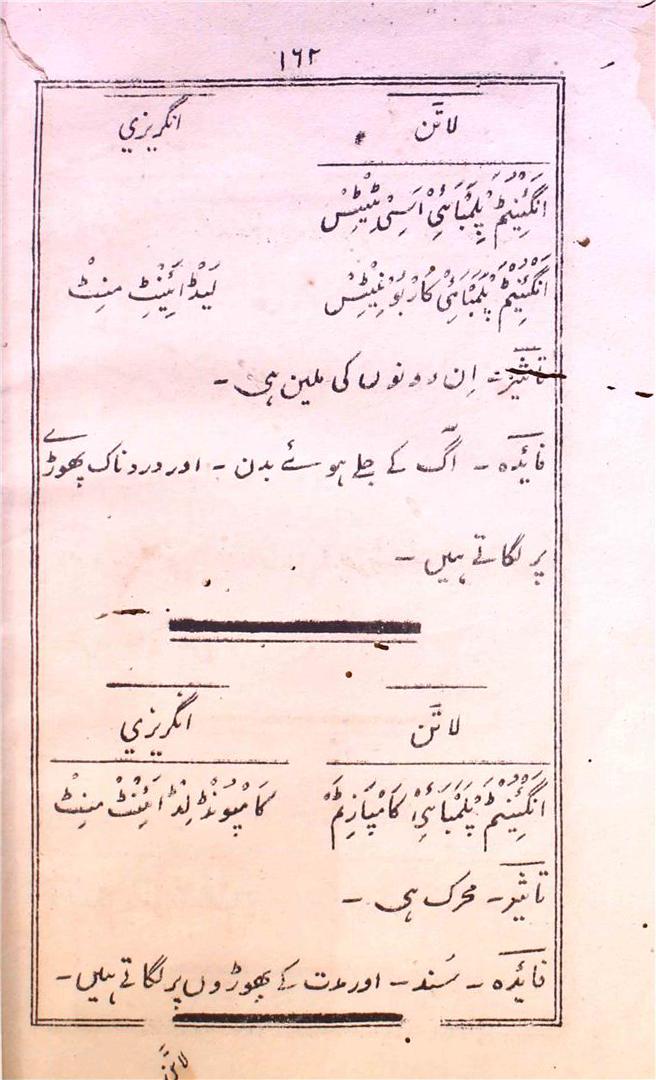 ۱۶۲
لاتن انگریزي
انگئینٹم پلمبائی اسی ٹیٹس
انگئینٹم پلمبائی کاربونیٹس لیڈ ائینٹ منٹ
تاثیر - اِن دونوں کی ملین ہی -
فایدہ - اگ کے جلے ہوئے بدن - اور دردناک پھوڑے
پر لگاتے ہیں -
لاتن انگریزي
انگئینٹم پلمبائی کامپازٹم کامپونڈ لڈ ائینٹ منٹ
تاثیر - محرک ہی -
فایدہ - سُند - اور مدت کے پھوڑوں پر لگاتے ہیں -
لاتن